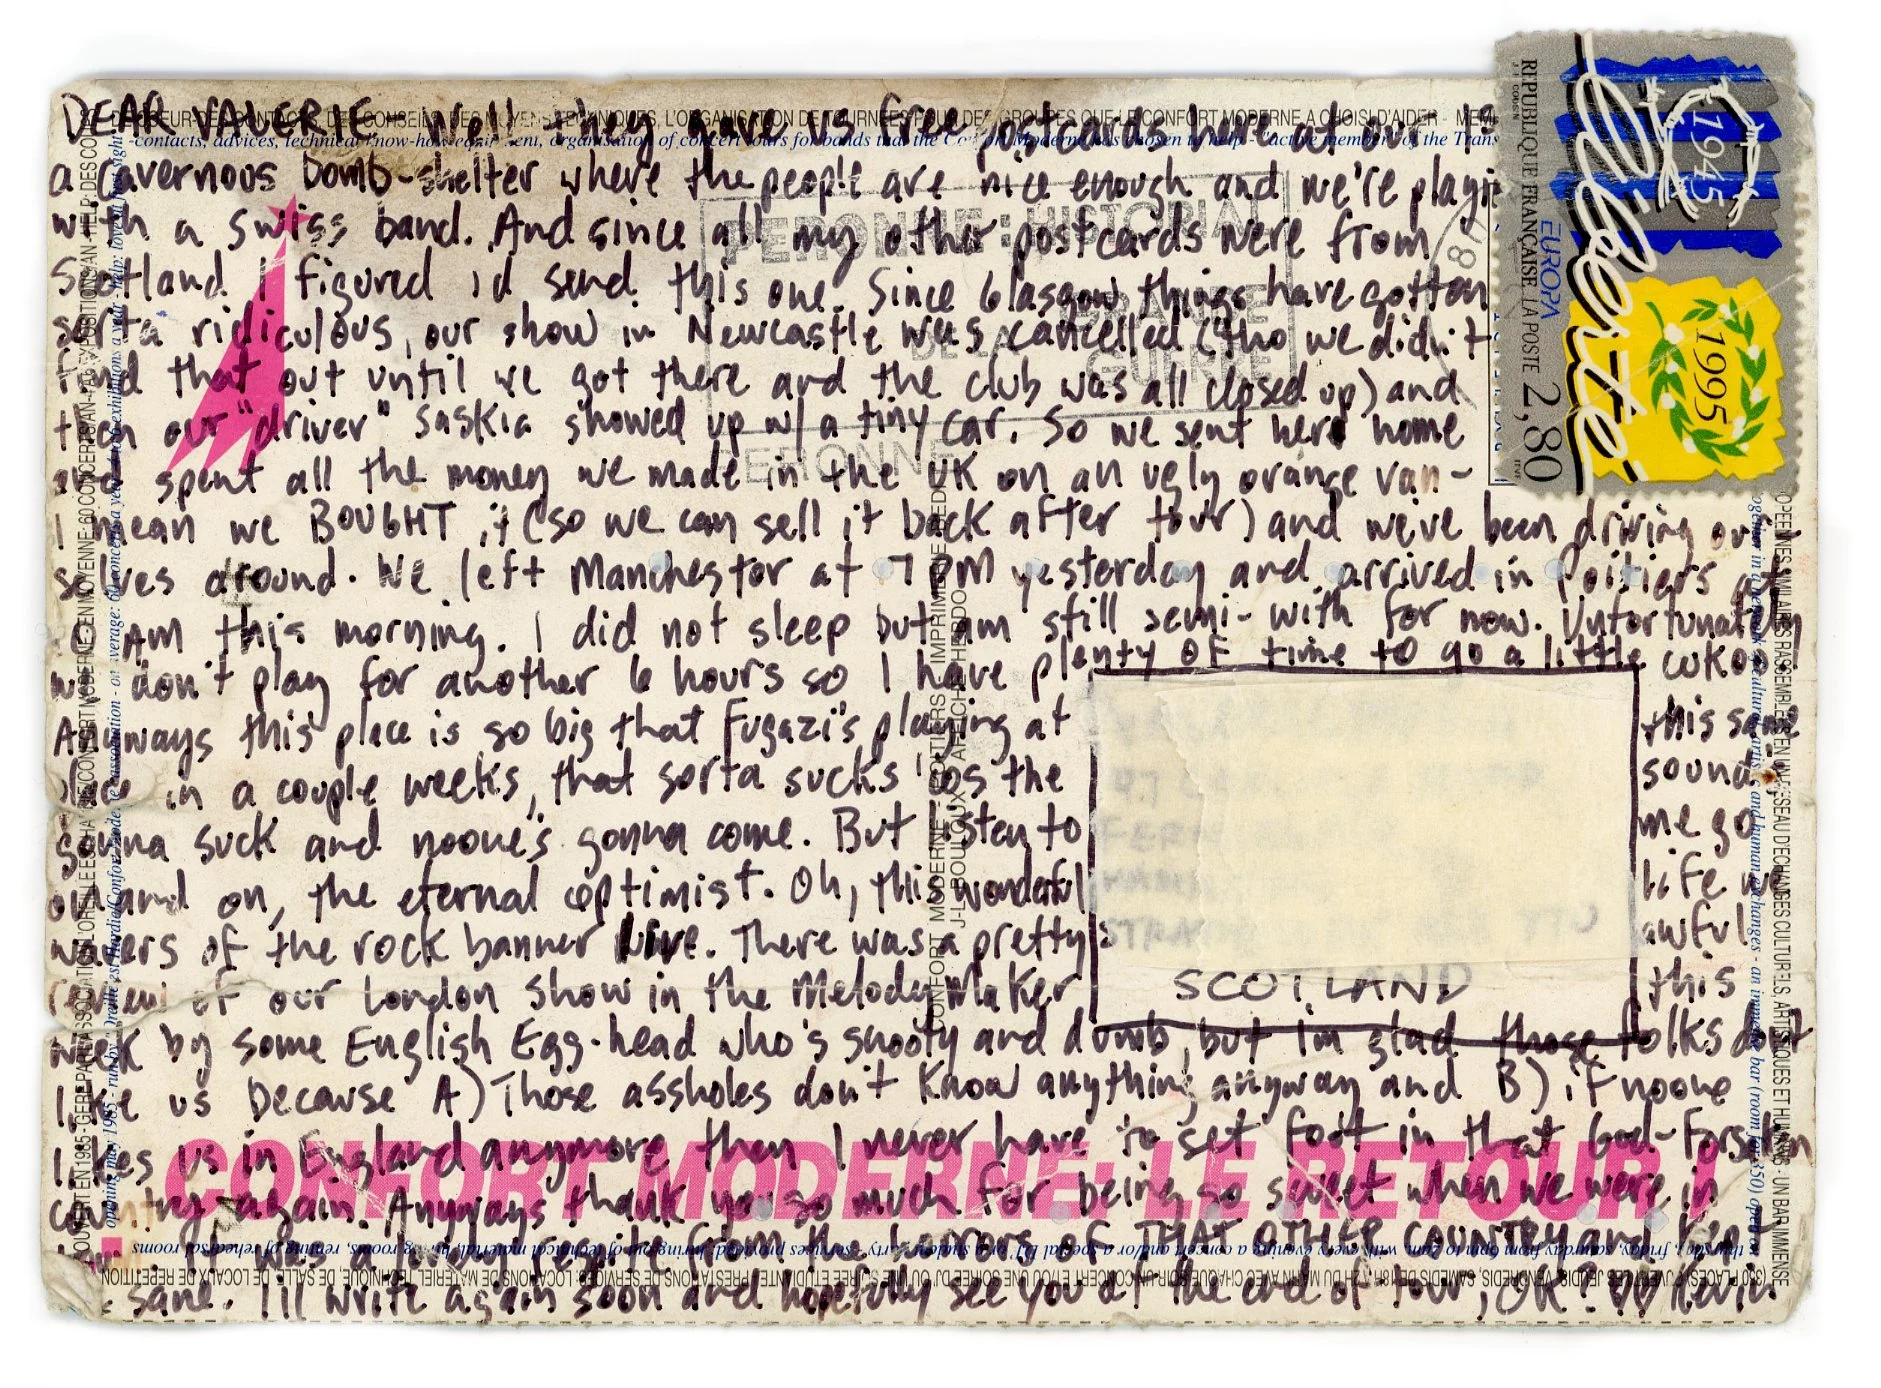 DEAR VALERIE Well they gave us free postcards here at our 1s
a cavernous bomb-shelter where the people are nice enough and we're playi
with a swiss band. And since all my other postcards were from
Scotland I figured id send this one. Since Glasgow things have gotten
sorta ridiculous, our show in Newcastle was cancelled (tho we didn't
find that out until we got there and the club was all closed up) and
then our "driver" Saskia showed up w/ a tiny car. So we sent her home
and spent all the money we made in the UK on an ugly orange van-
I mean we BOUGHT it (so we can sell it back after tour) and we've been driving our
selves around. We left Manchester at 7 PM yesterday and arrived in Poitiers at
AM this morning. I did not sleep but am still semi-with for now. Unfortunately
we don't play for another 6 hours so I have plenty OF time to go a little cukoo
Anyways this place is so big that Fugazi's playing at this same
place in a couple weeks, that sorta sucks 'cos the sound
gonna suck and noone's gonna come. But listen to me go
on and on, the eternal optimist. Oh, this wonderful life we
wavers of the rock banner live. There was a pretty awful
review of our London show in the Melody Maker this
week by some English Egg-head who's snooty and dumb, but i'm glad those folks don't
like us because A) Those assholes don't know anything anyway and B) if noone
likes us in England anymore then I never have to set foot in that God-Forsaken
country again. Anyways thank you so much for being so sweet when we were in
it was a lovely respite from the horrors of THAT OTHER COUNTRY and kep
sane. I'll write again soon and hopefully see you at the end of tour, OK? Kevin
SCOTLAND
PERONNE : HISTORIAL
DE LA GRANDE
GUERRE
PERONNE
RÉPUBLIQUE FRANÇAISE, LA POSTE 2,80
EUROPA
Liberté
1945
1995
CONFORT MODERNE: LE RETOUR !
CONFORT MODERNE - POITIERS